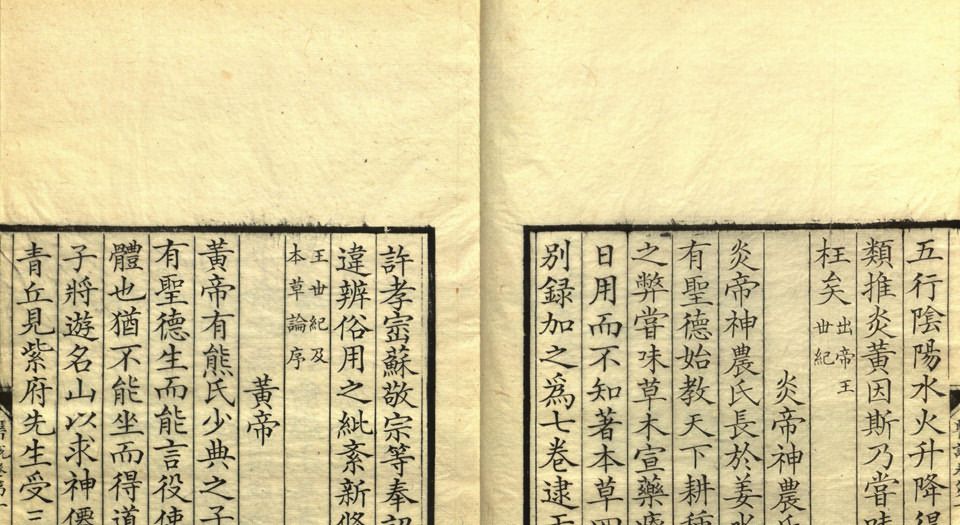 五行陰陽水火升降得
類推炎黃因斯乃嘗味
枉矣
出帝王
世紀
炎帝神農氏
炎帝神農氏長於姜水
有聖德始教天下耕種
之弊嘗味草木宣藥療
日用而不知著本草四
別録加之爲七卷逮于
許孝崇蘇敬宗等奉詔
違辨俗用之紕紊新修
王世紀及
本草論序
黃帝
黃帝有熊氏少典之子
有聖德生而能言役使
體也猶不能坐而得道
子將遊名山以求神僊
青丘見紫府先生受三